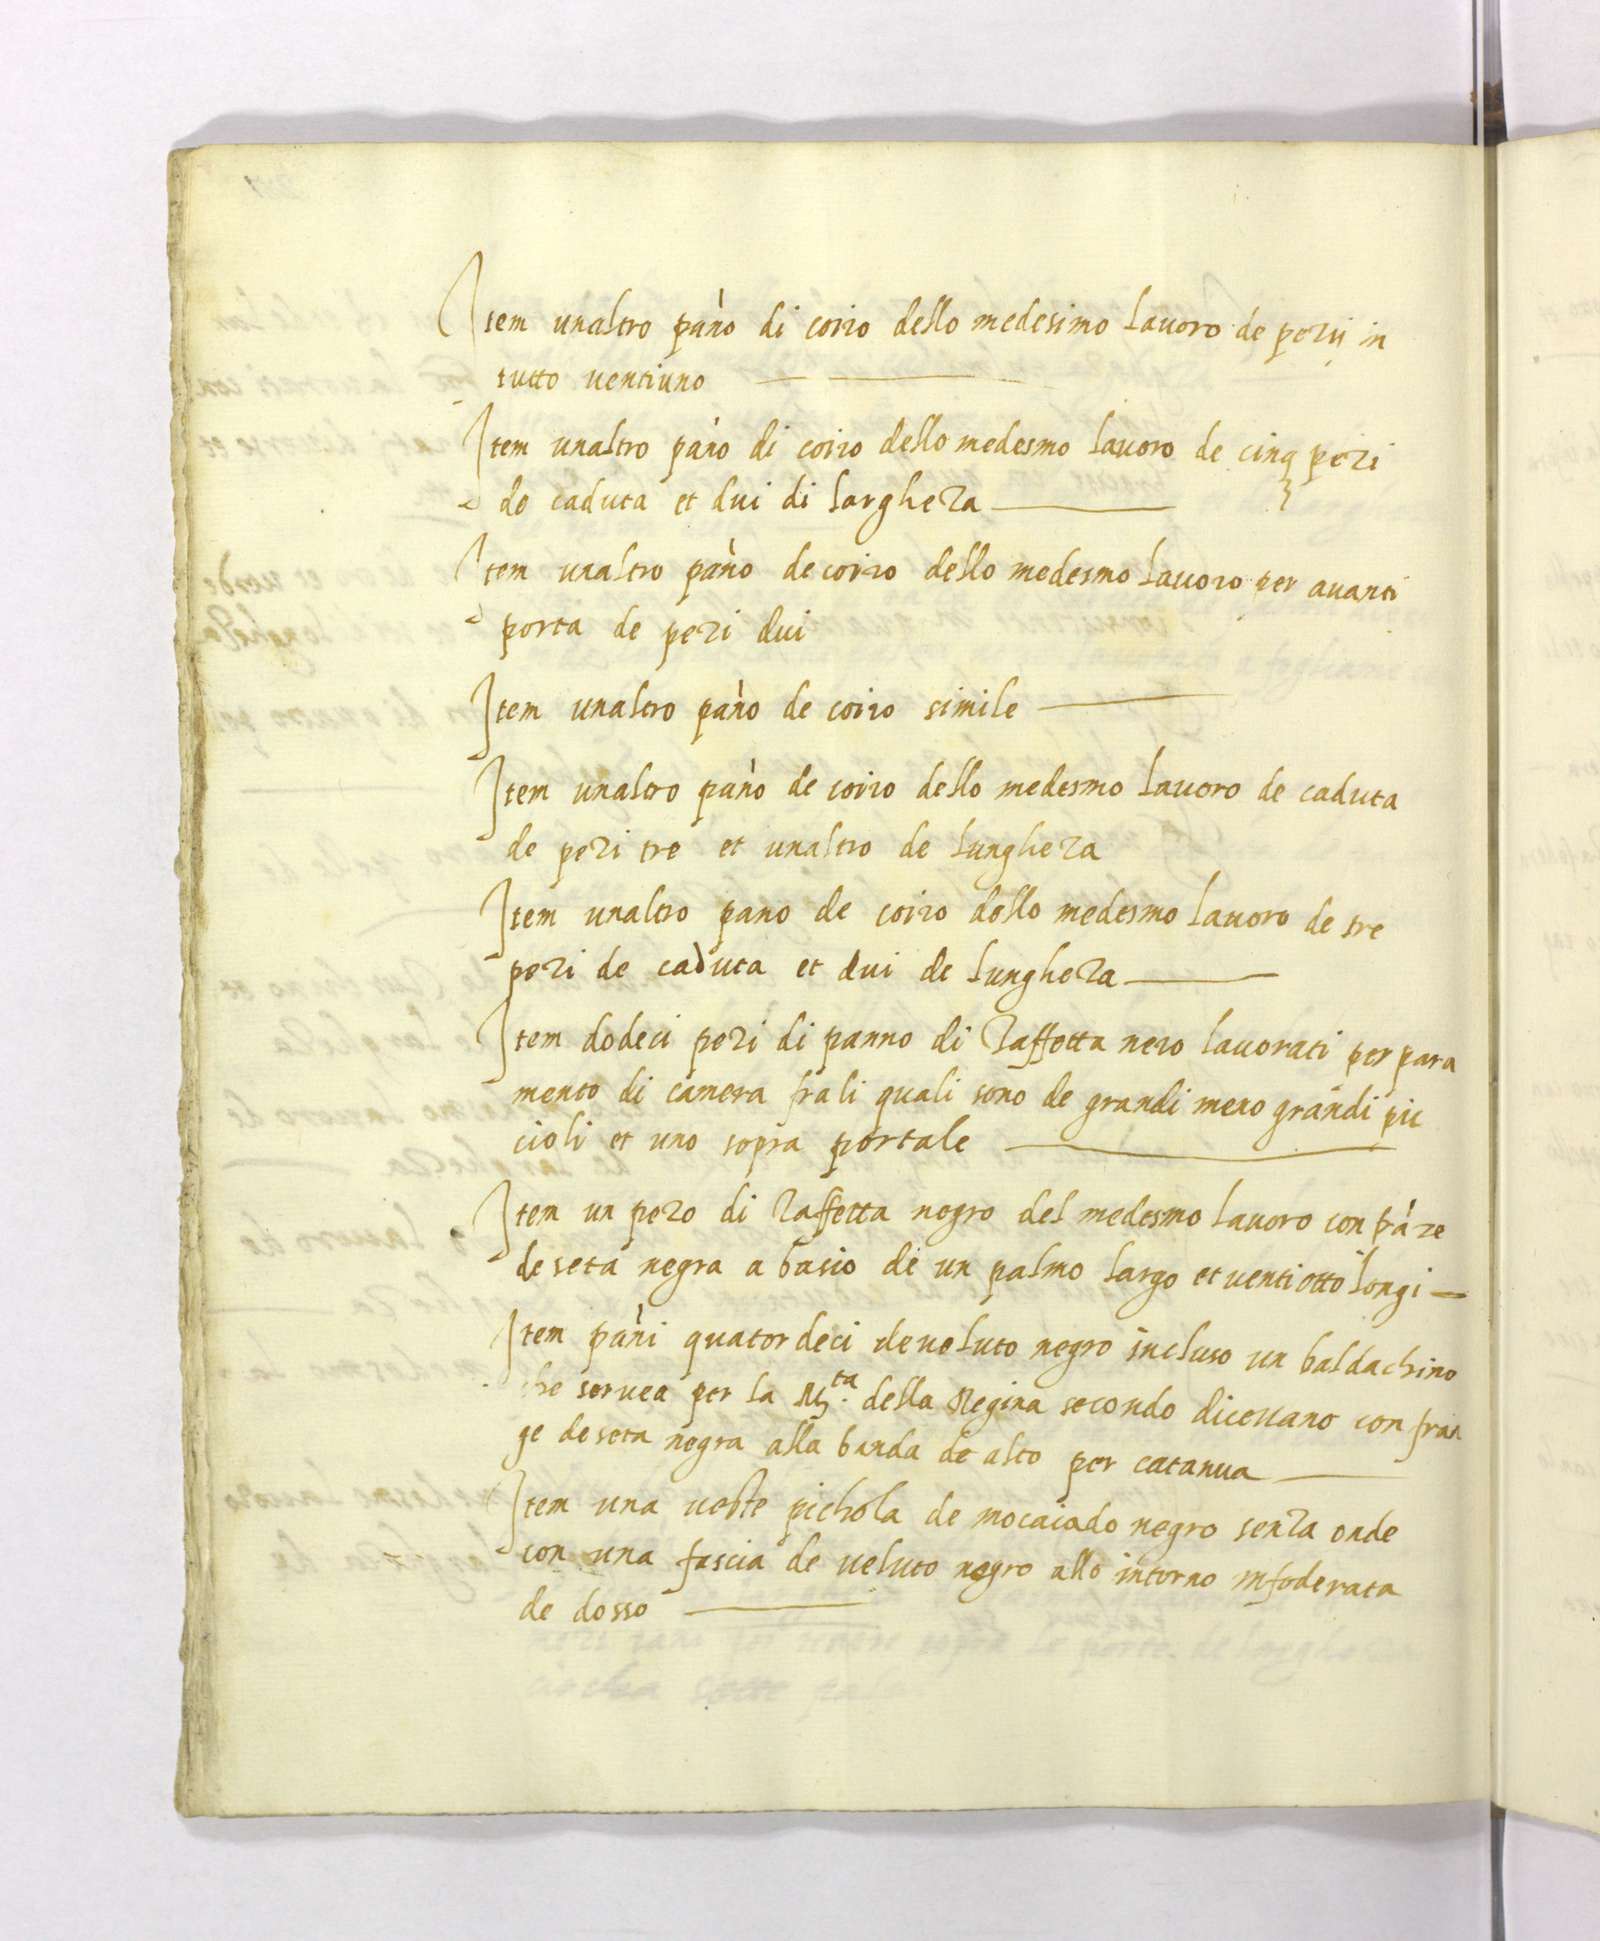 Item unaltro pãno di coiro dello medesimo lavoro de pezij in
tutto ventiuno
Item unaltro pãno di coiro dello medesmo lavoro de cinq pezi
de caduta et dui di largheza
Item unaltro pãno de coiro dello medesmo lavoro per avanti
porta de pezi dui
Item unaltro pãno de coiro simile
Item unaltro pãno de coiro dello medesmo lavoro de caduta
de pezi tre et unaltro de lungheza
Item unaltro pano de coiro dello medesmo lavoro de tre
pezi de caduta et dui de lungheza
Item dodeci pezi di panno di Zaffetta nero lavorati per para
mento di camera fra li quali sono de grandi meno grandi pic
cioli et uno sopra portale
Item un pezo di Zaffetta negro del medesmo lavoro con frãze
de seta negra a basio de un palmo largo et venti otto longi
Item pãni quatordeci de veluto negro incluso un baldachino
che servea per la M.ta della Regina secondo dicevano con fran
ge de seta negra alla banda de alto per catanva
Item una veste pichola de mocaiado negro senza onde
con una fascia de veluto negro allo intorno infoderata
de dosso